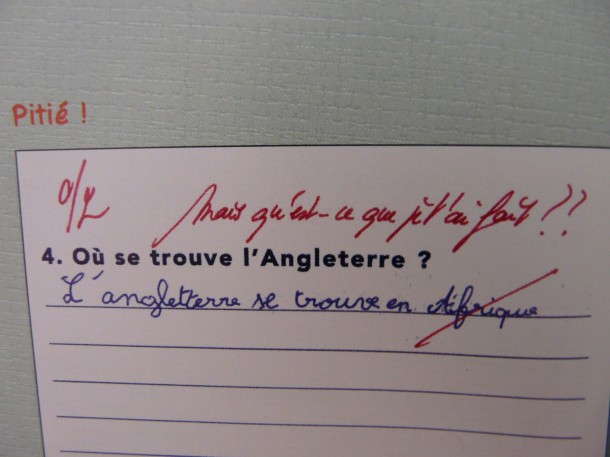 Pitié !
0/2 Mais qu'est-ce que j't'ai fait ??
4. Où se trouve l'Angleterre ?
L'angletterre se trouve en Afrique